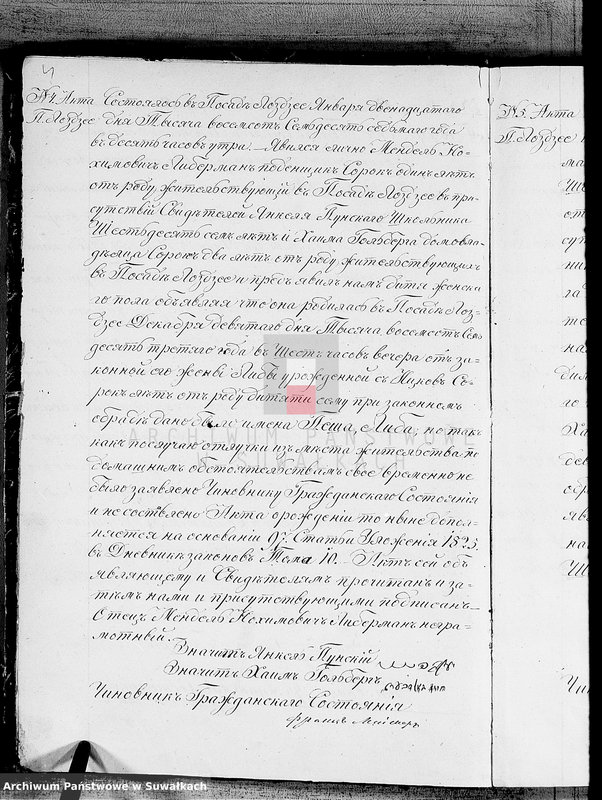 4
№4. Акта Состоялось въ Посадѣ Лоздзее Января двенадцатаго
П. Лоздзее дня Тысяча восемсотъ Семьдесятъ седьмаго года
въ десять часовъ утра. Явился лично Мендель Но-
химовичъ Либерманъ поденщикъ Сорокъ одинъ лѣтъ
отъ роду жительствующій въ Посадѣ Лоздзее въ при-
сутствіи Свидѣтелей Янкеля Пунскаго Школьника
Шестьдесятъ семь лѣтъ и Хаима Гольберга домовла-
дѣльца Сорокъ два лѣтъ отъ роду жительствующихъ
въ Посадѣ Лоздзее и предъявилъ намъ дитя женска
го пола объявляя что она родилась въ Посадѣ Лоз-
дзее Декабря девятаго дня Тысяча восемсотъ Семь
десятъ третяго года въ Шесть часовъ вечера отъ за-
конной его жены Либы урожденной Со-
рокъ лѣтъ отъ роду дитяти сему при законномъ
обрядѣ дано было имена Пеша, Либа; но такъ
какъ по случаю отлучки изъ мѣста жительства по
домашнимъ обстоятельствамъ свое временно не
было заявлено Чиновнику Гражданскаго Состоянія
и не составлено Акта о рожденіи то ныне допол-
няется на основаніи 97. Статьи Уложенія 1825.
въ Дневникъ законовъ Тома 10. – Актъ сей объ
являющему и Свидѣтелямъ прочитанъ и за-
тѣмъ нами и присутствующими подписанъ
Отецъ Мендель Нохимовичъ Либерманъ негра-
мотный. –
Значитъ Янкель Пунскій
Значитъ Хаимъ Гольбергъ
Чиновникъ Гражданскаго Состоянія
№5. Акта
П. Лоздзее
ARCHIWUM PAŃSTWOWE
W SUWAŁKACH
Archiwum Państwowe w Suwałkach